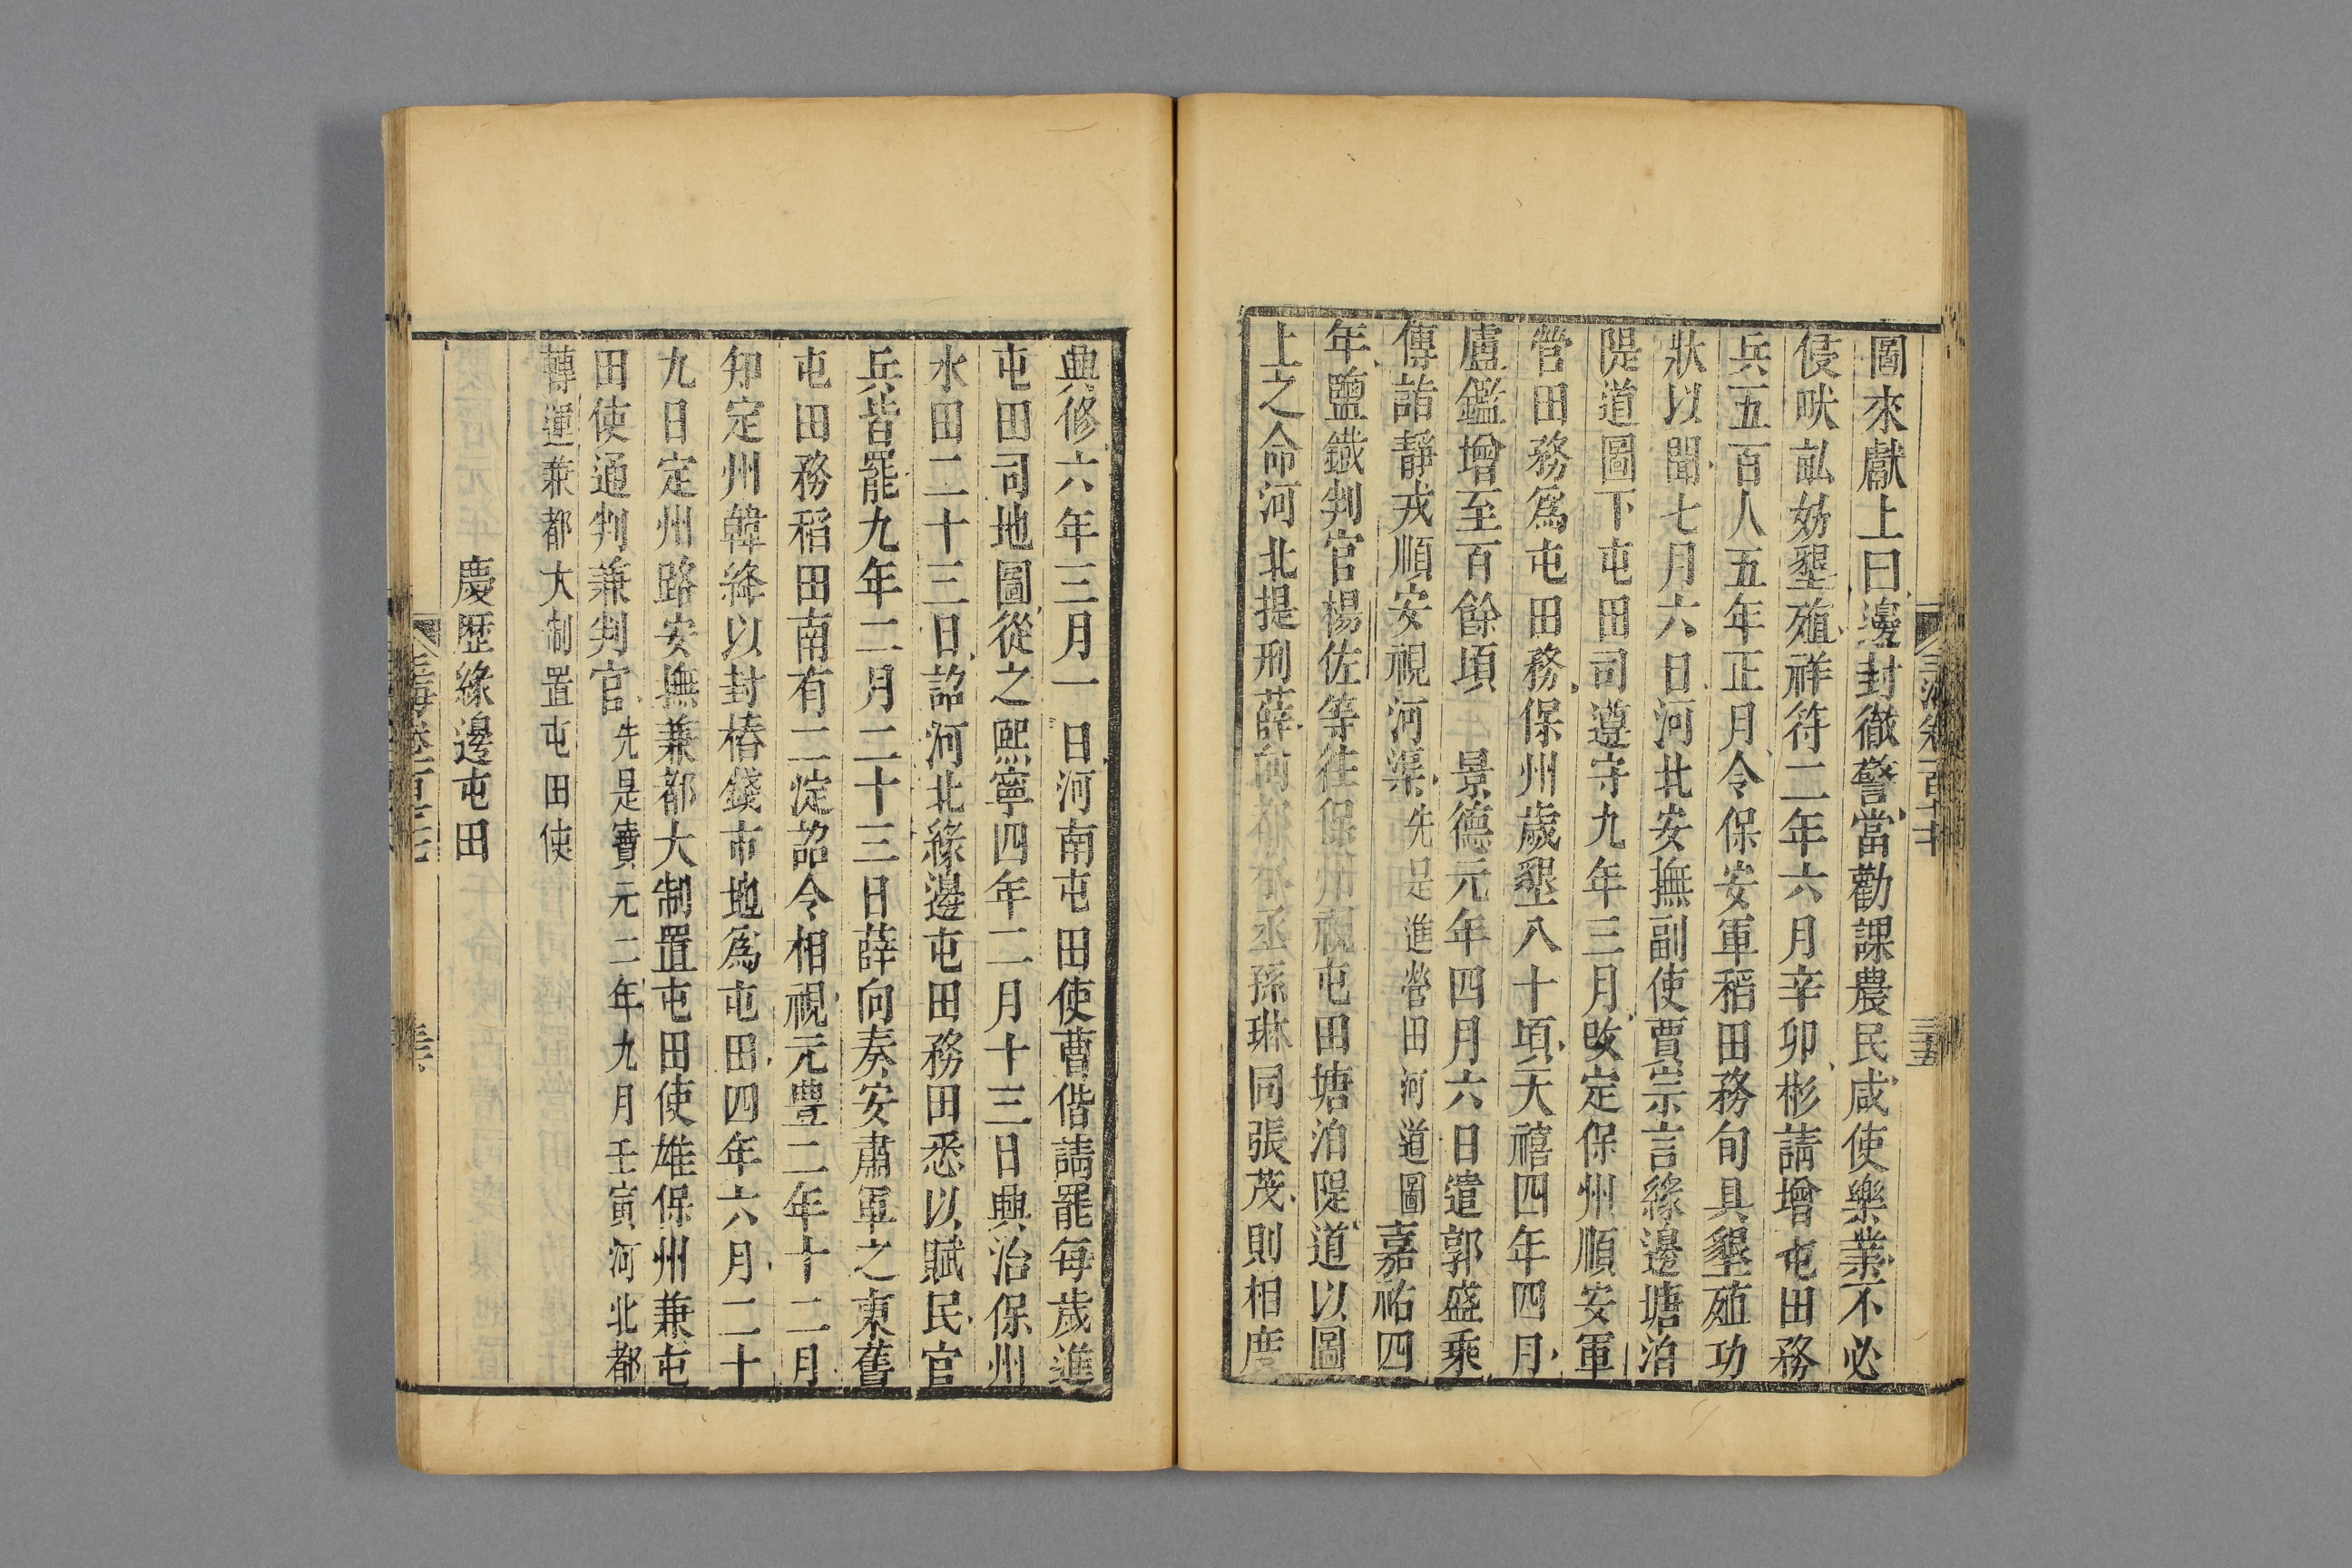 圖來獻上曰邊封徹警當勸課農民咸使樂業不必
侵畎畝妨墾殖祥符二年六月辛卯彬請增屯田務
兵五百人五年正月令保安軍稻田務旬具墾殖功
狀以聞七月六日河北安撫副使賈宗言緣邊塘泊
隄道圖下屯田司遵守九年三月改定保州順安軍
營田務爲屯田務保州歲墾八十頃天禧四年四月
盧鑑增至百餘頃 景德元年四月六日遣郭盛乘
傳詣靜戎順安視河渠先是進營田河道圖嘉祐四
年鹽鐵判官楊佐等往保州視屯田塘泊隄道以圖
上之命河北提刑薛向都水丞孫琳同張茂則相度
典修六年三月一日河南屯田使曹偕請罷每歲進
屯田司地圖從之熙寧四年二月十三日興治保州
水田二十三日詔河北緣邊屯田務田悉以賦民官
兵皆罷九年二月二十三日薛向奏安肅軍之東舊
屯田務稻田南有二淀詔令相視元豐二年十二月
知定州韓絳以封樁錢市地爲屯田四年六月二十
九日定州路安撫兼都大制置屯田使雄保州兼屯
田使通判兼判官先是寶元二年九月壬寅河北都
轉運兼都大制置屯田使
慶歷緣邊屯田